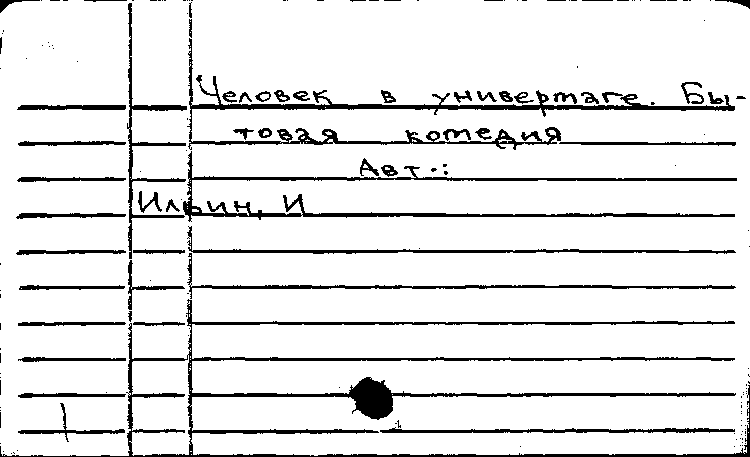 Человек в универмаге. Бы-
товая комедия
Авт.:
Ильин, И